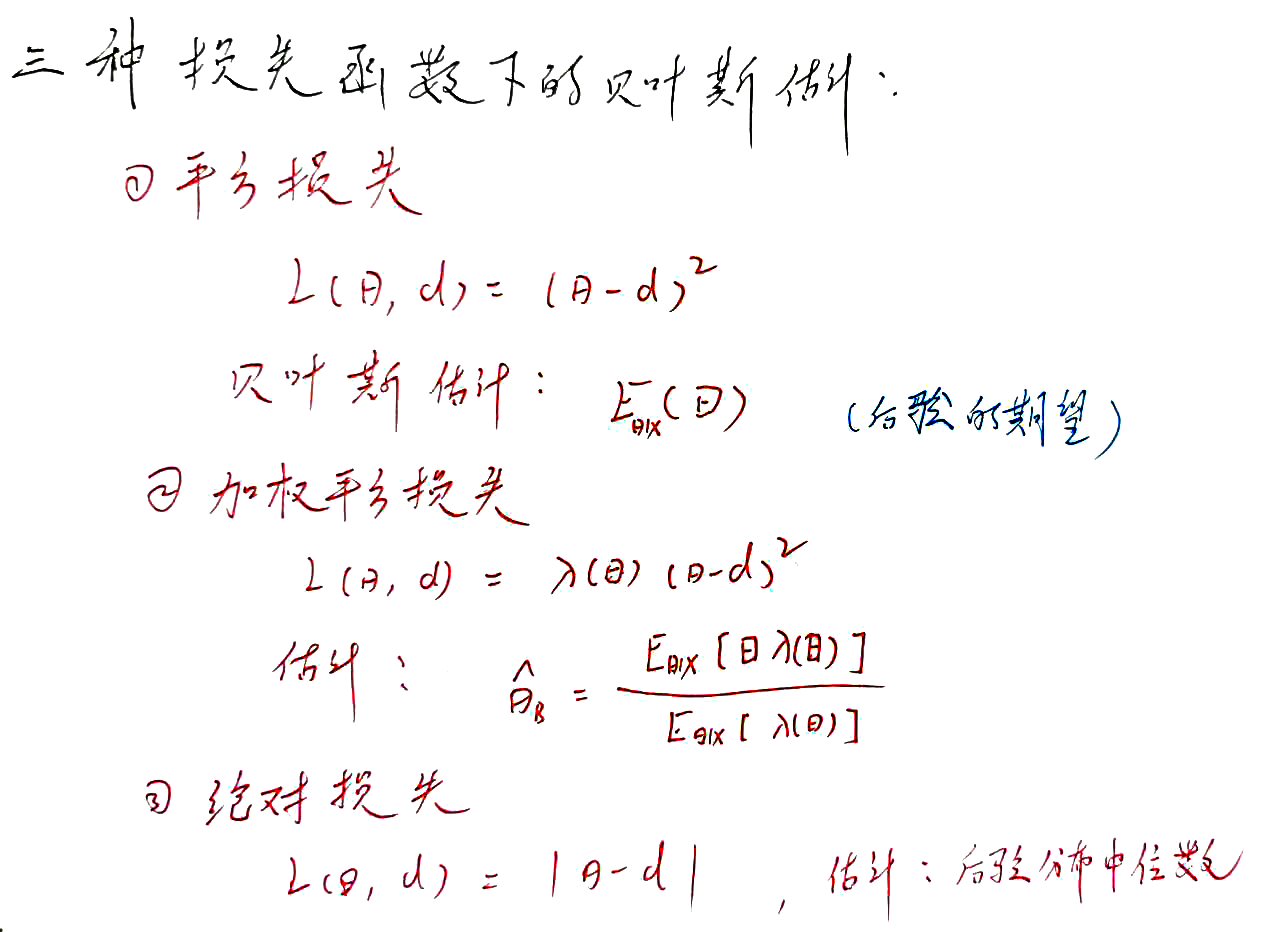 三种损失函数下的贝叶斯估计:
① 平方损失
L(θ, d) = (θ-d)²
贝叶斯估计: E_{θ|X}(θ) (后验的期望)
② 加权平方损失
L(θ, d) = λ(θ) (θ-d)²
估计: \hat{θ}_B = \frac{E_{θ|X}[θλ(θ)]}{E_{θ|X}[λ(θ)]}
③ 绝对损失
L(θ, d) = |θ-d| , 估计: 后验分布中位数